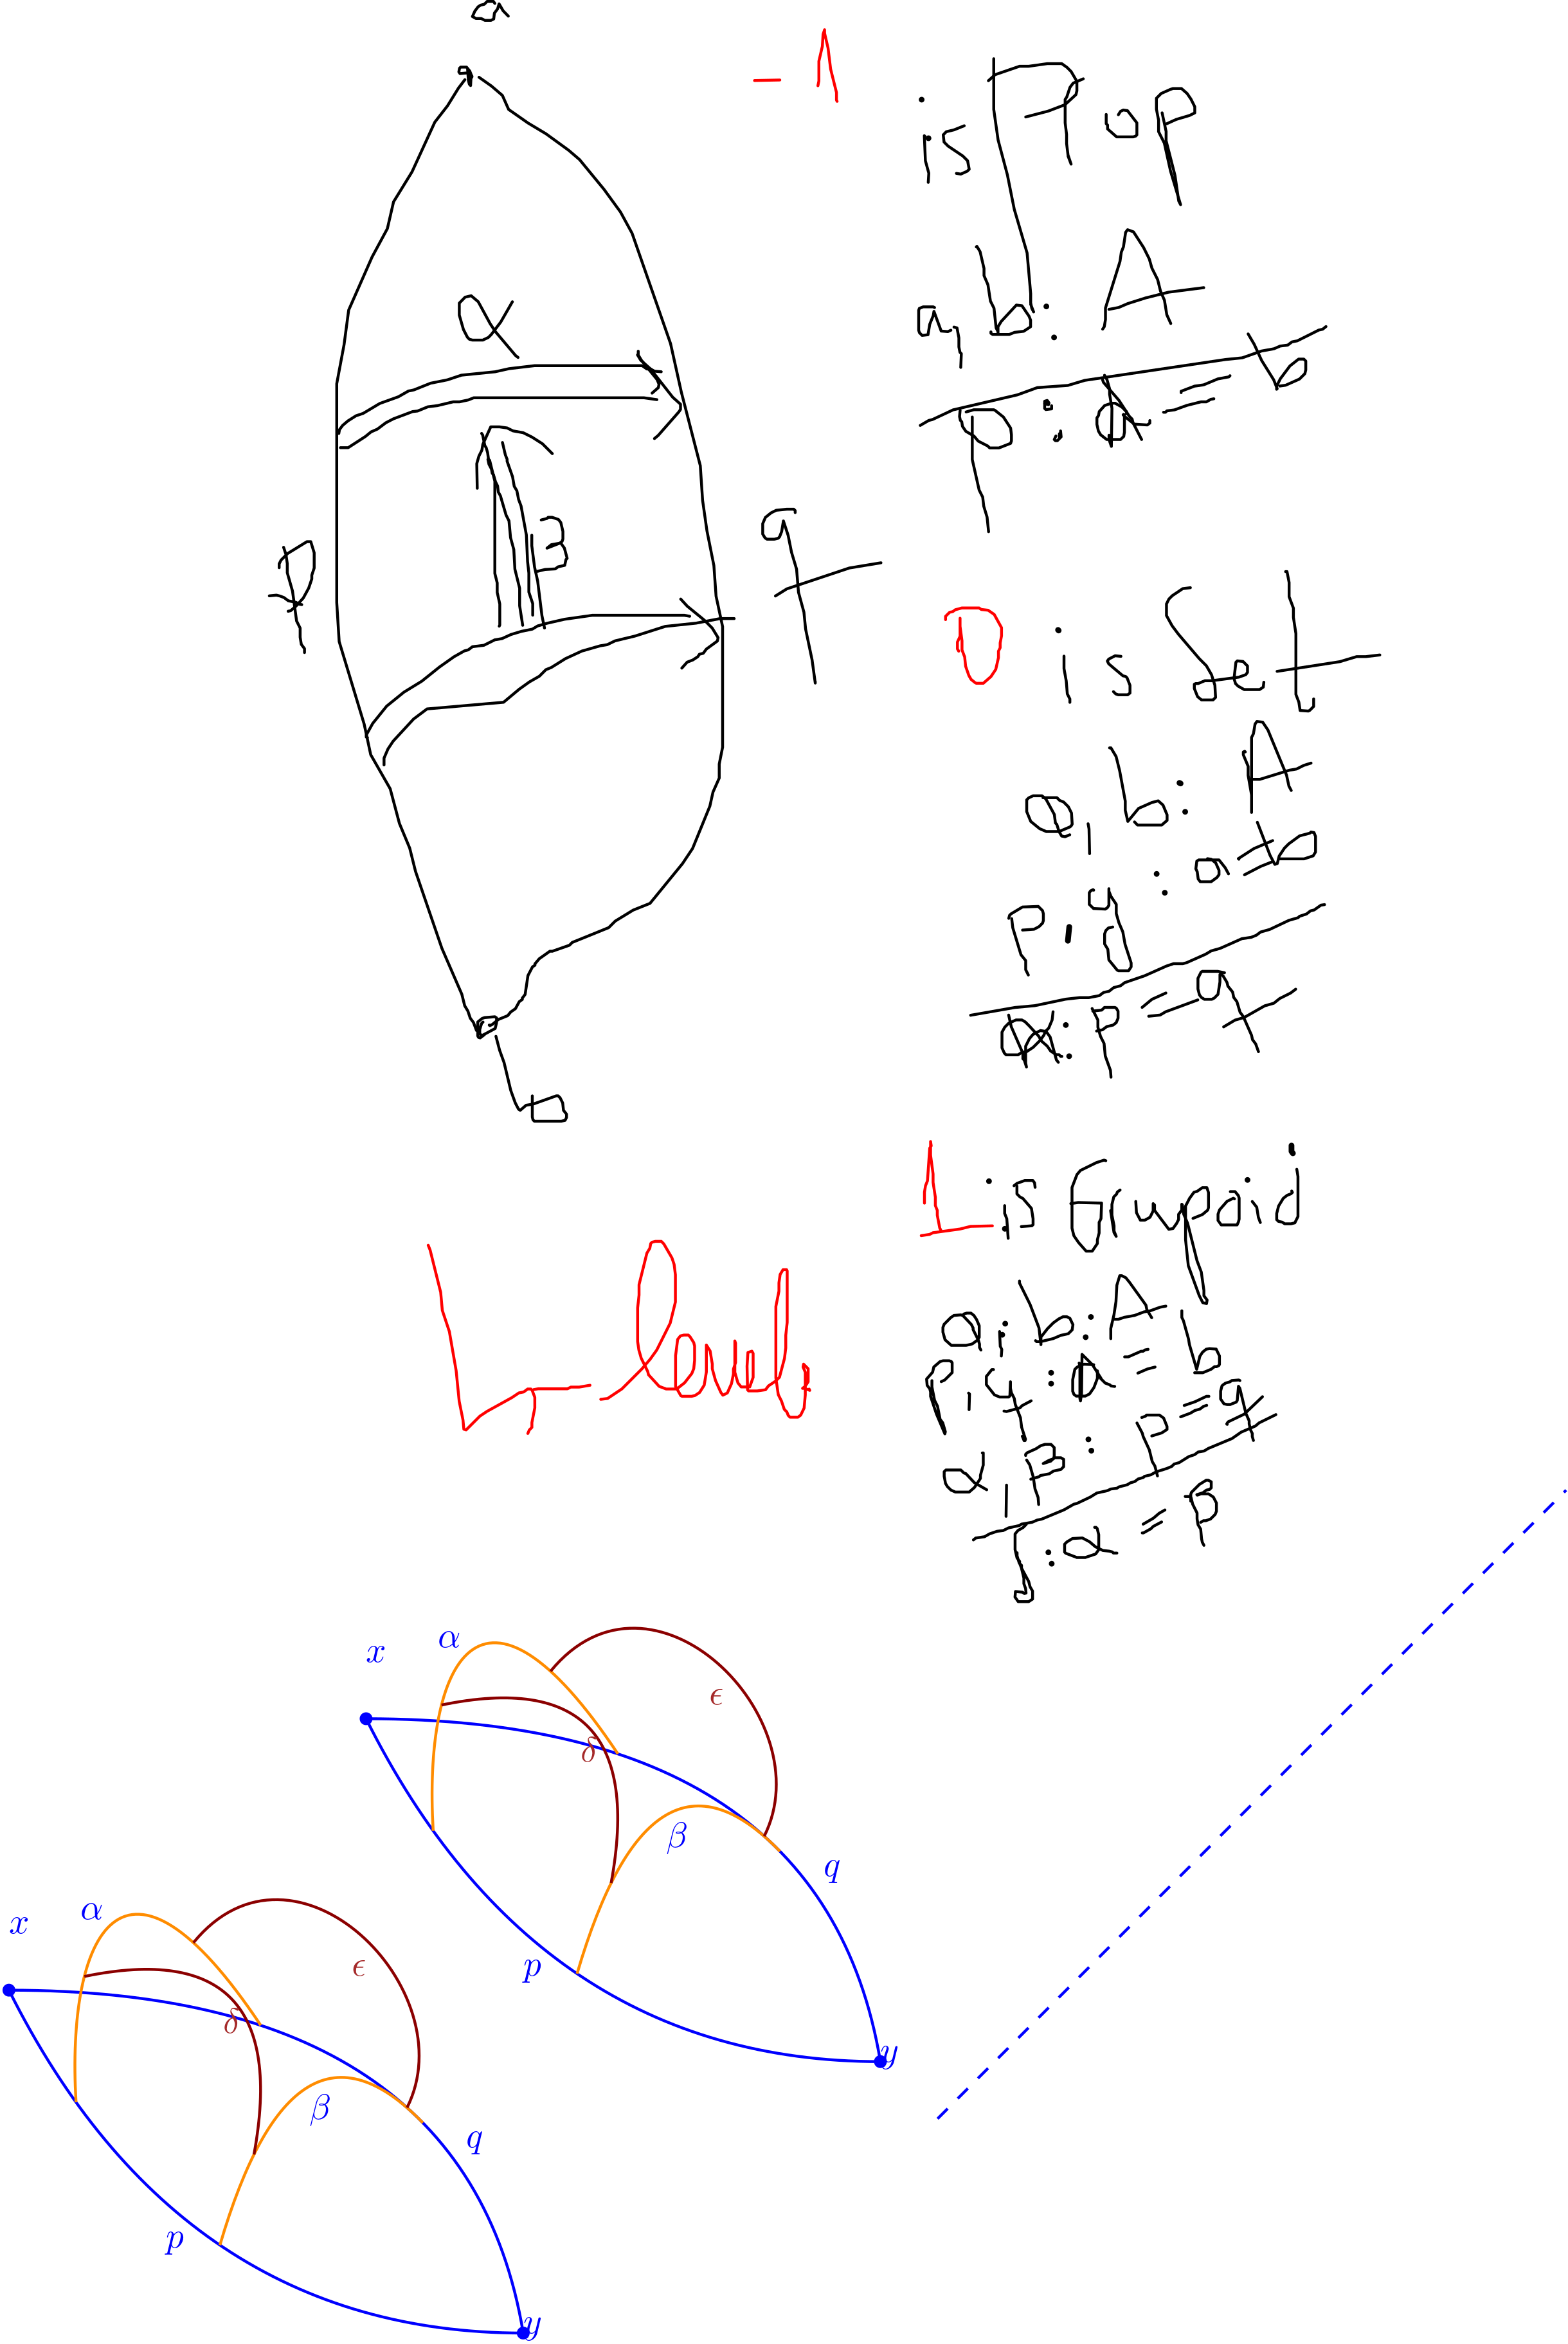 a
-1
is Prop
a, b : A
p : a = b
α
β
p
q
0 is Set
a, b : A
p, q : a = b
α : p = q
b
1 is Grupoid
a, b : A
p, q : a = b
α, β : p = q
f : α = β
h-levels
x
α
ϵ
δ
β
q
p
y
x
α
ϵ
δ
β
q
p
y